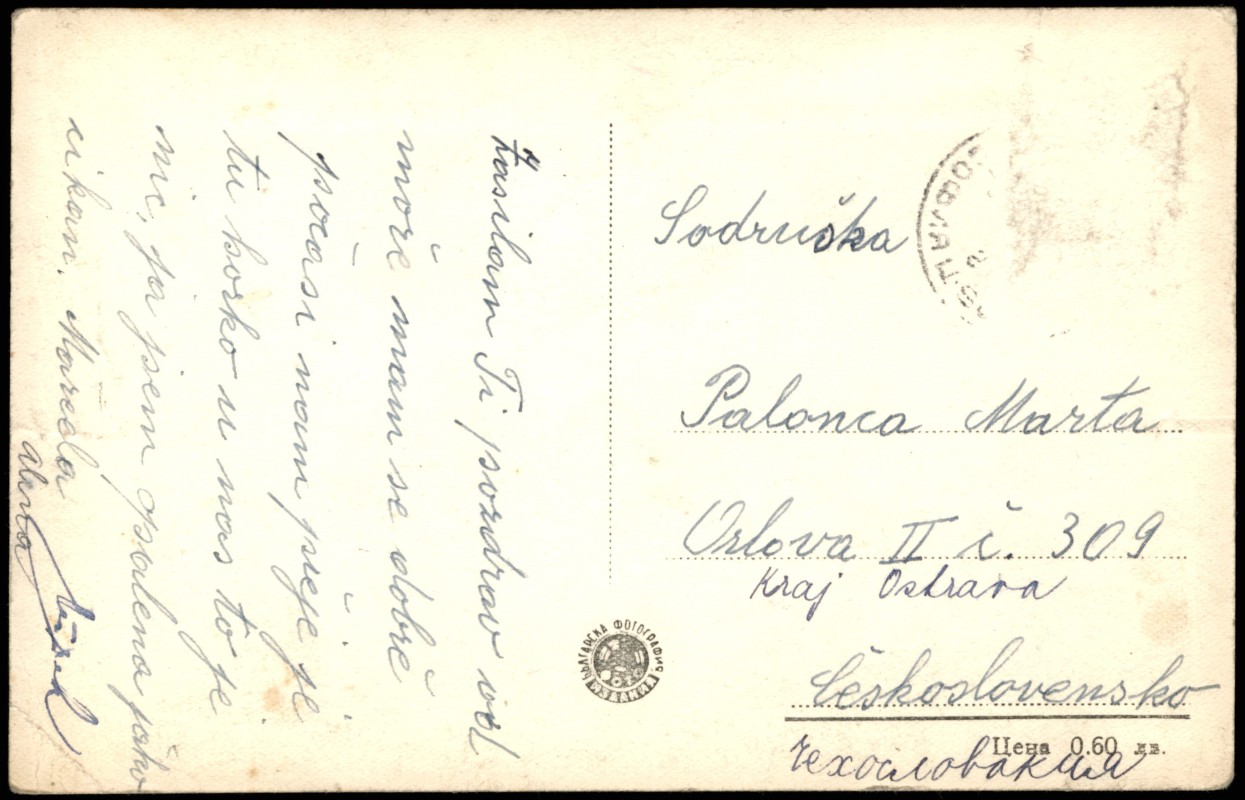 Zasilam Ti pozdrav od
moře mam se dobře
počasi nam přeje je
tu horko u nas to je
nic, ja jsem opalena jako
cikan. Marcela
Soudružka
Palonca Marta
Orlova II č. 309
Kraj Ostrava
Československo
Чехословакия
БЪЛГАРСКА ФОТОГРАФИЯ
Цена 0.60 лв.
СОФИЯ